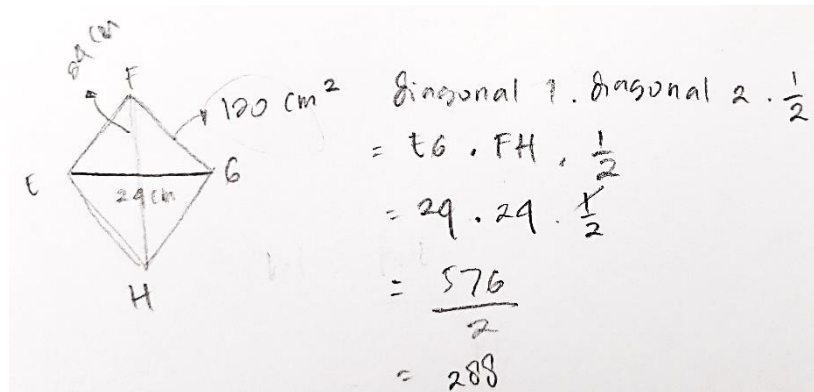 24 cm
F
120 cm²
E
G
24 cm
H
diagonal 1 . diagonal 2 . 1/2
= EG . FH . 1/2
= 24 . 24 . 1/2
= 576/2
= 288